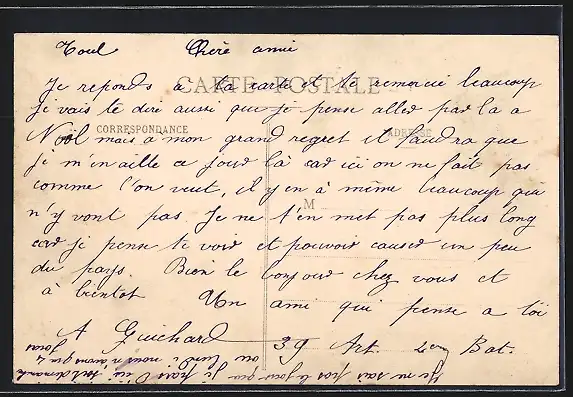 Toul Chère amie
CARTE POSTALE
Je reponds a ta carte et te remercie beaucoup
je vais te dire aussi que je pense aller par la a
CORRESPONDANCE
ADRESSE
Noël mais a mon grand regret il faudra que
je m'en aille ce jour là car ici on ne fait pas
comme l'on veut, il y en a même beaucoup qui
M
n'y vont pas. Je ne t'en met pas plus long
car je pense te voir et pouvoir causer un peu
du pays. Bien le bonjour chez vous et
à bientot Un ami qui pense a toi
A Guichard 39 Art. 2em Bat.
Je ne sais pas le jour que je pars d'ici,
ou lundi nous n'avons que 4
jours